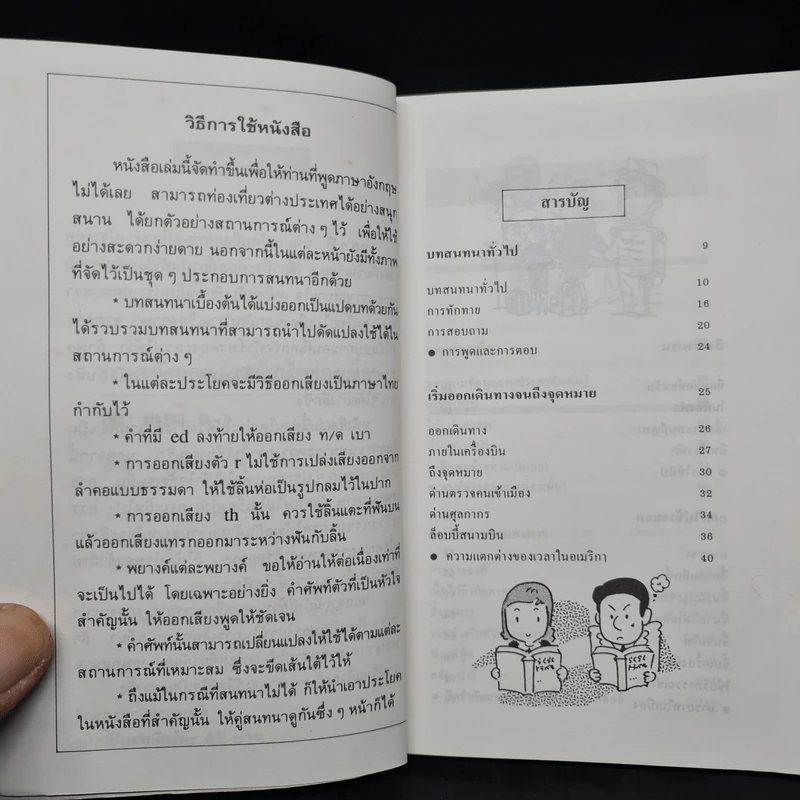 วิธีการใช้หนังสือ
หนังสือเล่มนี้จัดทำขึ้นเพื่อให้ท่านที่พูดภาษาอังกฤษ
ไม่ได้เลย สามารถท่องเที่ยวต่างประเทศได้อย่างสนุก
สนาน ได้ยกตัวอย่างสถานการณ์ต่าง ๆ ไว้ เพื่อให้ใช้
อย่างสะดวกง่ายดาย นอกจากนี้ในแต่ละหน้ายังมีทั้งภาพ
ที่จัดไว้เป็นชุด ๆ ประกอบการสนทนาอีกด้วย
* บทสนทนาเบื้องต้นได้แบ่งออกเป็นแปดบทด้วยกัน
ได้รวบรวมบทสนทนาที่สามารถนำไปดัดแปลงใช้ได้ใน
สถานการณ์ต่าง ๆ
* ในแต่ละประโยคจะมีวิธีออกเสียงเป็นภาษาไทย
กำกับไว้
* คำที่มี ed ลงท้ายให้ออกเสียง ท/ด เบา
* การออกเสียงตัว r ไม่ใช้การเปล่งเสียงออกจาก
ลำคอแบบธรรมดา ให้ใช้ลิ้นห่อเป็นรูปกลมไว้ในปาก
* การออกเสียง th นั้น ควรใช้ลิ้นแตะที่ฟันบน
แล้วออกเสียงแทรกออกมาระหว่างฟันกับลิ้น
* พยางค์แต่ละพยางค์ ขอให้อ่านให้ต่อเนื่องเท่าที่
จะเป็นไปได้ โดยเฉพาะอย่างยิ่ง คำศัพท์ตัวที่เป็นหัวใจ
สำคัญนั้น ให้ออกเสียงพูดให้ชัดเจน
* คำศัพท์นั้นสามารถเปลี่ยนแปลงให้ใช้ได้ตามแต่ละ
สถานการณ์ที่เหมาะสม ซึ่งจะขีดเส้นใต้ไว้ให้
* ถึงแม้ในกรณีที่สนทนาไม่ได้ ก็ให้นำเอาประโยค
ในหนังสือที่สำคัญนั้น ให้คู่สนทนาดูกันซึ่ง ๆ หน้าก็ได้
สารบัญ
บทสนทนาทั่วไป 9
บทสนทนาทั่วไป 10
การทักทาย 16
การสอบถาม 20
● การพูดและการตอบ 24
เริ่มออกเดินทางจนถึงจุดหมาย 25
ออกเดินทาง 26
ภายในเครื่องบิน 27
ถึงจุดหมาย 30
ด่านตรวจคนเข้าเมือง 32
ด่านศุลกากร 34
ล็อบบี้สนามบิน 36
● ความแตกต่างของเวลาในอเมริกา 40